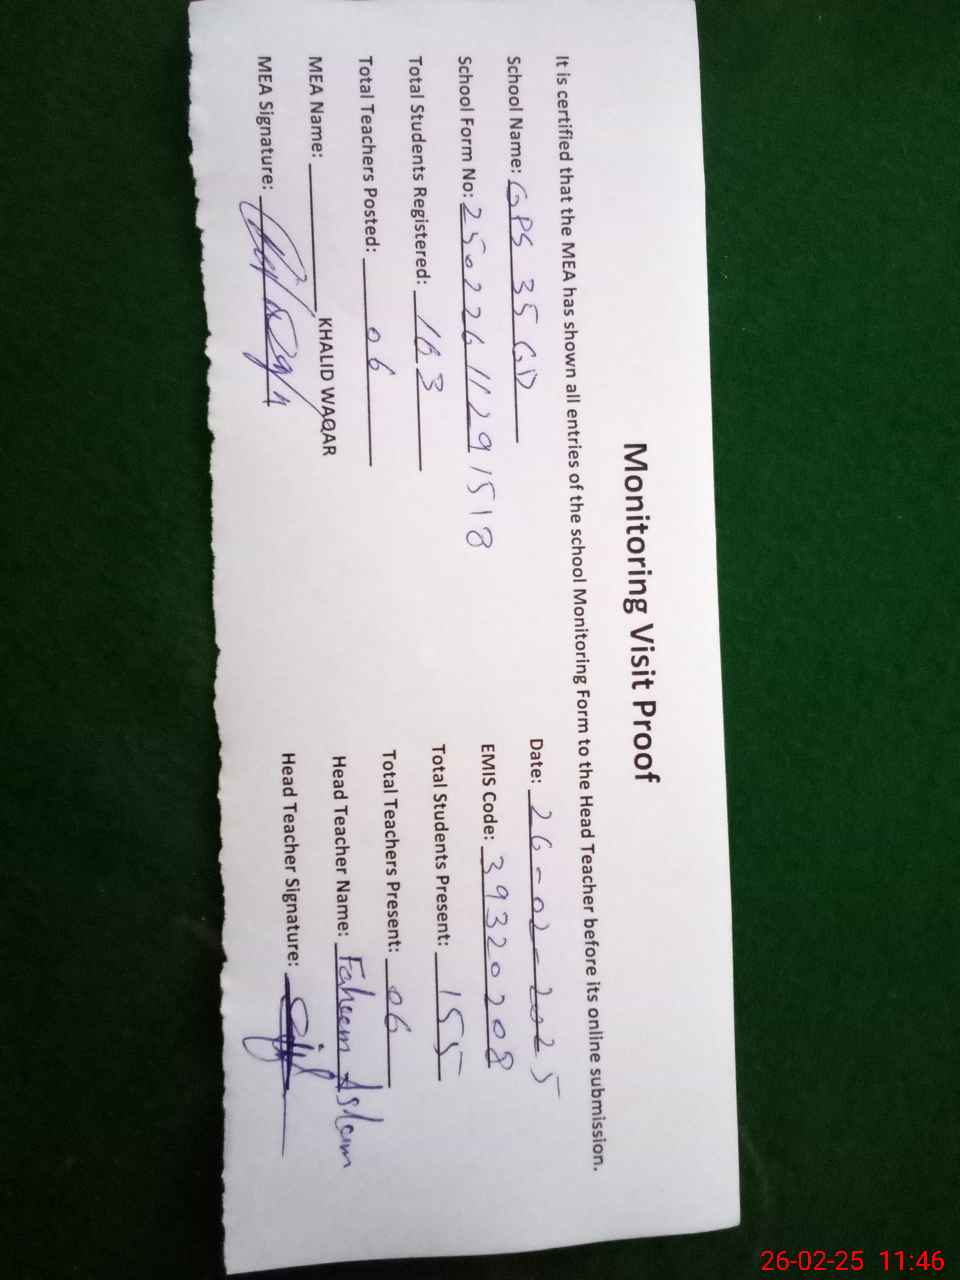 Monitoring Visit Proof
It is certified that the MEA has shown all entries of the school Monitoring Form to the Head Teacher before its online submission.
School Name: GPS 35 GD Date: 26-02-2025
School Form No: 25022611291518 EMIS Code: 39320208
Total Students Registered: 163 Total Students Present: 155
Total Teachers Posted: 06 Total Teachers Present: 06
MEA Name: KHALID WAQAR Head Teacher Name: Faheem Aslam
MEA Signature: Head Teacher Signature:
26-02-25 11:46